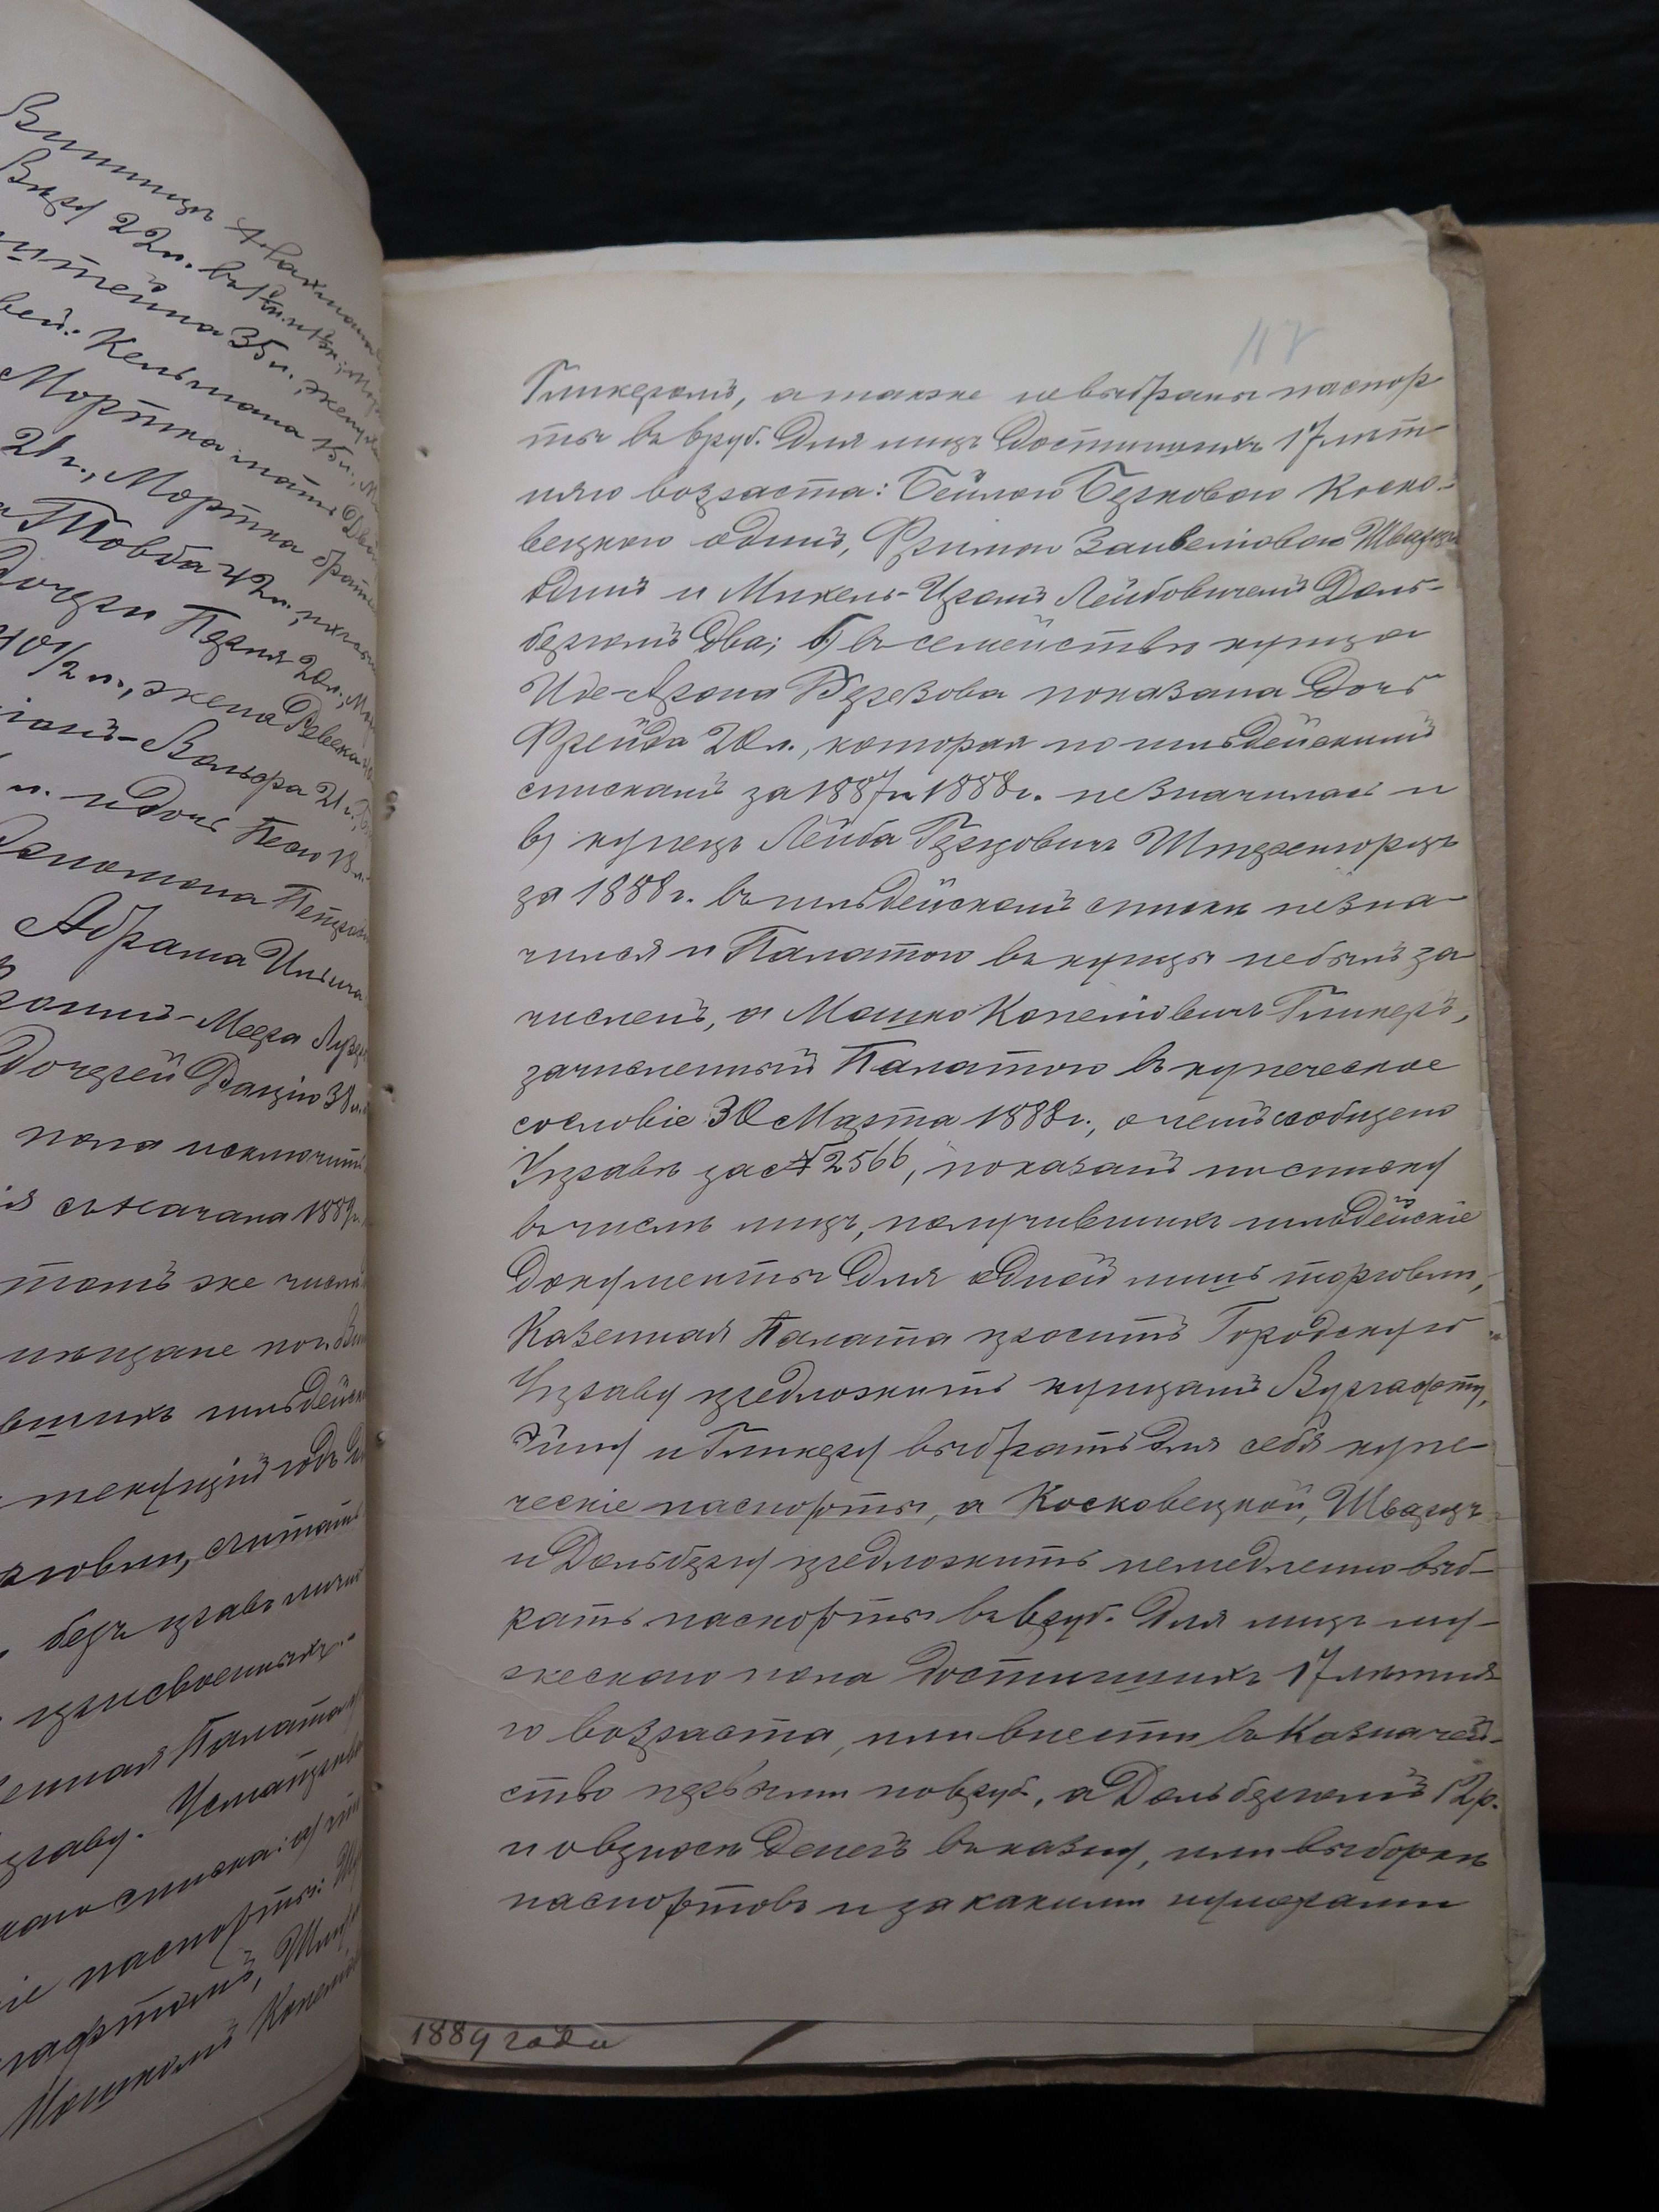 Винницѣ
Вид 22 л. въ
штейна 35 л., жену
вей: Кельмана 15 л.,
Мортка мать
21 г., Мортка братъ
Товба 42 л., ихъ
Дочери Перля 20 л.,
40 1/2 л., жена Ревека
Вольфа 21 г.,
л. и Дочь Песю 13 л.
Соломона
Абрама
Меера
Дочерей Данцю 38 л.
пола исключить
съ Начала 1889 г.
томъ же числѣ
мѣщане пог. Вин
вшихъ гильдейск
текущій годъ
рговли, считать
безъ правъ личн
присвоенныхъ.
енная Палата
праву. Усматрива
каго списка: а) ги
іе паспорты:
гафтомъ,
Мошкомъ Копел
117
Гликеромъ, а также невыбраны паспор
ты въ 6 руб. для лицъ достигшихъ 17 лѣт
няго возраста: Бейлою Берковою Коско-
вецкою одинъ, Фримою Занвеліовою Шварцъ
одинъ и Михель-Цраль Лейбовичемъ Доль-
бергомъ два; б) въ семействѣ купца
Иде-Арона Березова показана дочь
Фрейда 20 л., которая по гильдейскимъ
спискамъ за 1887 и 1888 г. незначилась и
в) купецъ Лейба Герцовичъ Штеренгерцъ
за 1888 г. въ гильдейскомъ списке незна-
чился и Палатою въ купцы небылъ за
численъ, а Мошко Копеліовичъ Гликеръ,
зачисленный Палатою въ купеческое
сословіе 30 Марта 1888 г., о чемъ сообщено
Управѣ за № 2566, показанъ по списку
въ числѣ лицъ, получившихъ гильдейскіе
документы для одной лишь торговли,
Казенная Палата проситъ Городскую
Управу предложить купцамъ Вургафту,
и Гликеру выбрать для себя купе-
ческіе паспорты, а Косковецкой, Шварцъ
и Дольбергу предложить немедленно выб-
рать паспорты въ 6 руб. для лицъ му-
жескаго пола достигшихъ 17 лѣтня
го возраста, или внести въ Казначей-
ство первыми по 6 руб., а Дольбергомъ 12 р.
и о взносѣ денегъ въ казну, или выборкѣ
паспортовъ и за какими нумерами
1889 года